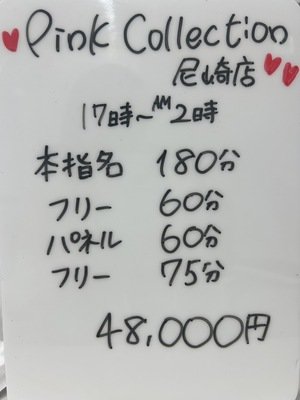 Pink Collection
尼崎店
17時～AM2時
本指名 180分
フリー 60分
パネル 60分
フリー 75分
48,000円